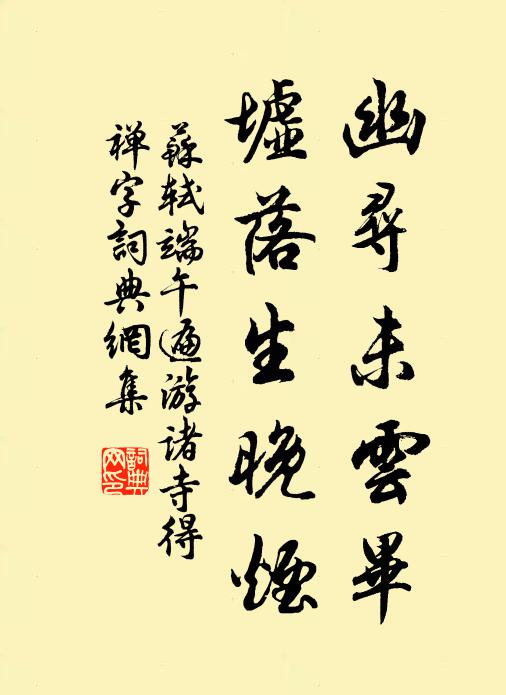 幽尋未雲畢
墟落生晚煙
蘇軾端午遍游諸寺得
禅字詞典網集
詞典网印